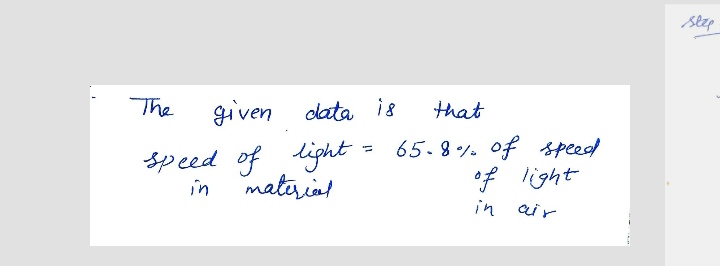 step
The given data is that
speed of light = 65.8% of speed
in material of light
in air